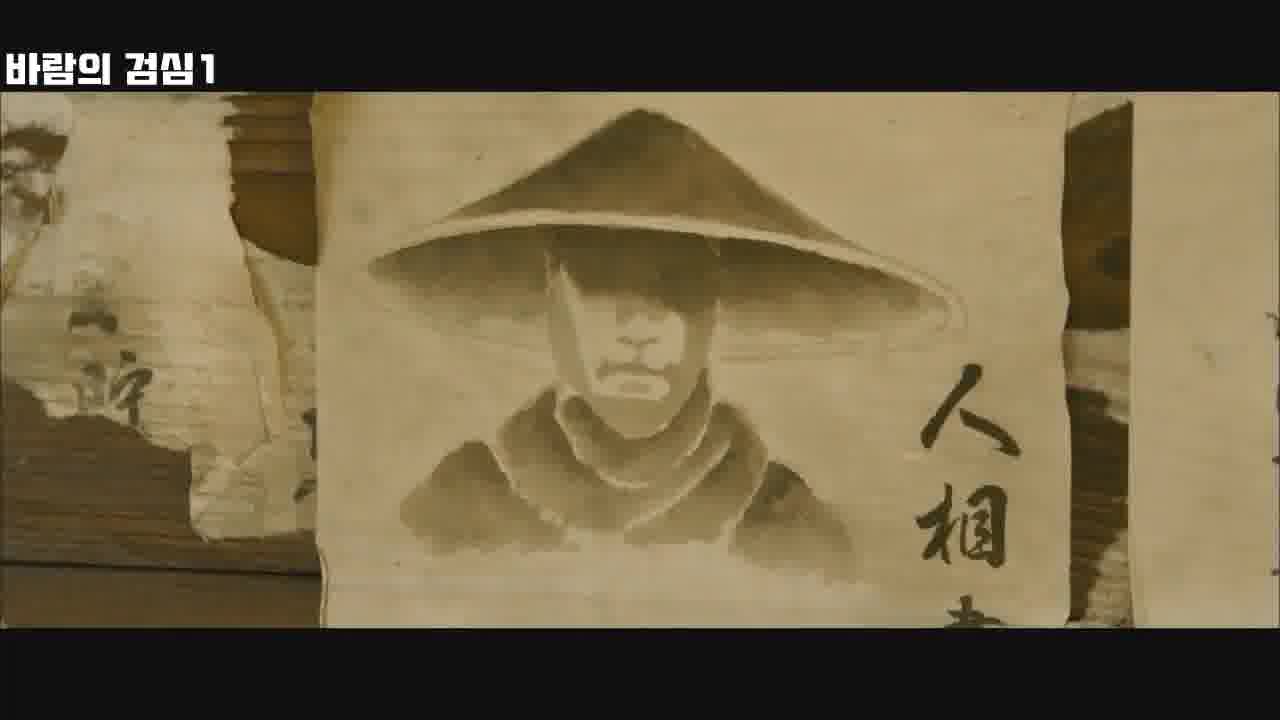 바람의 검심1
人相